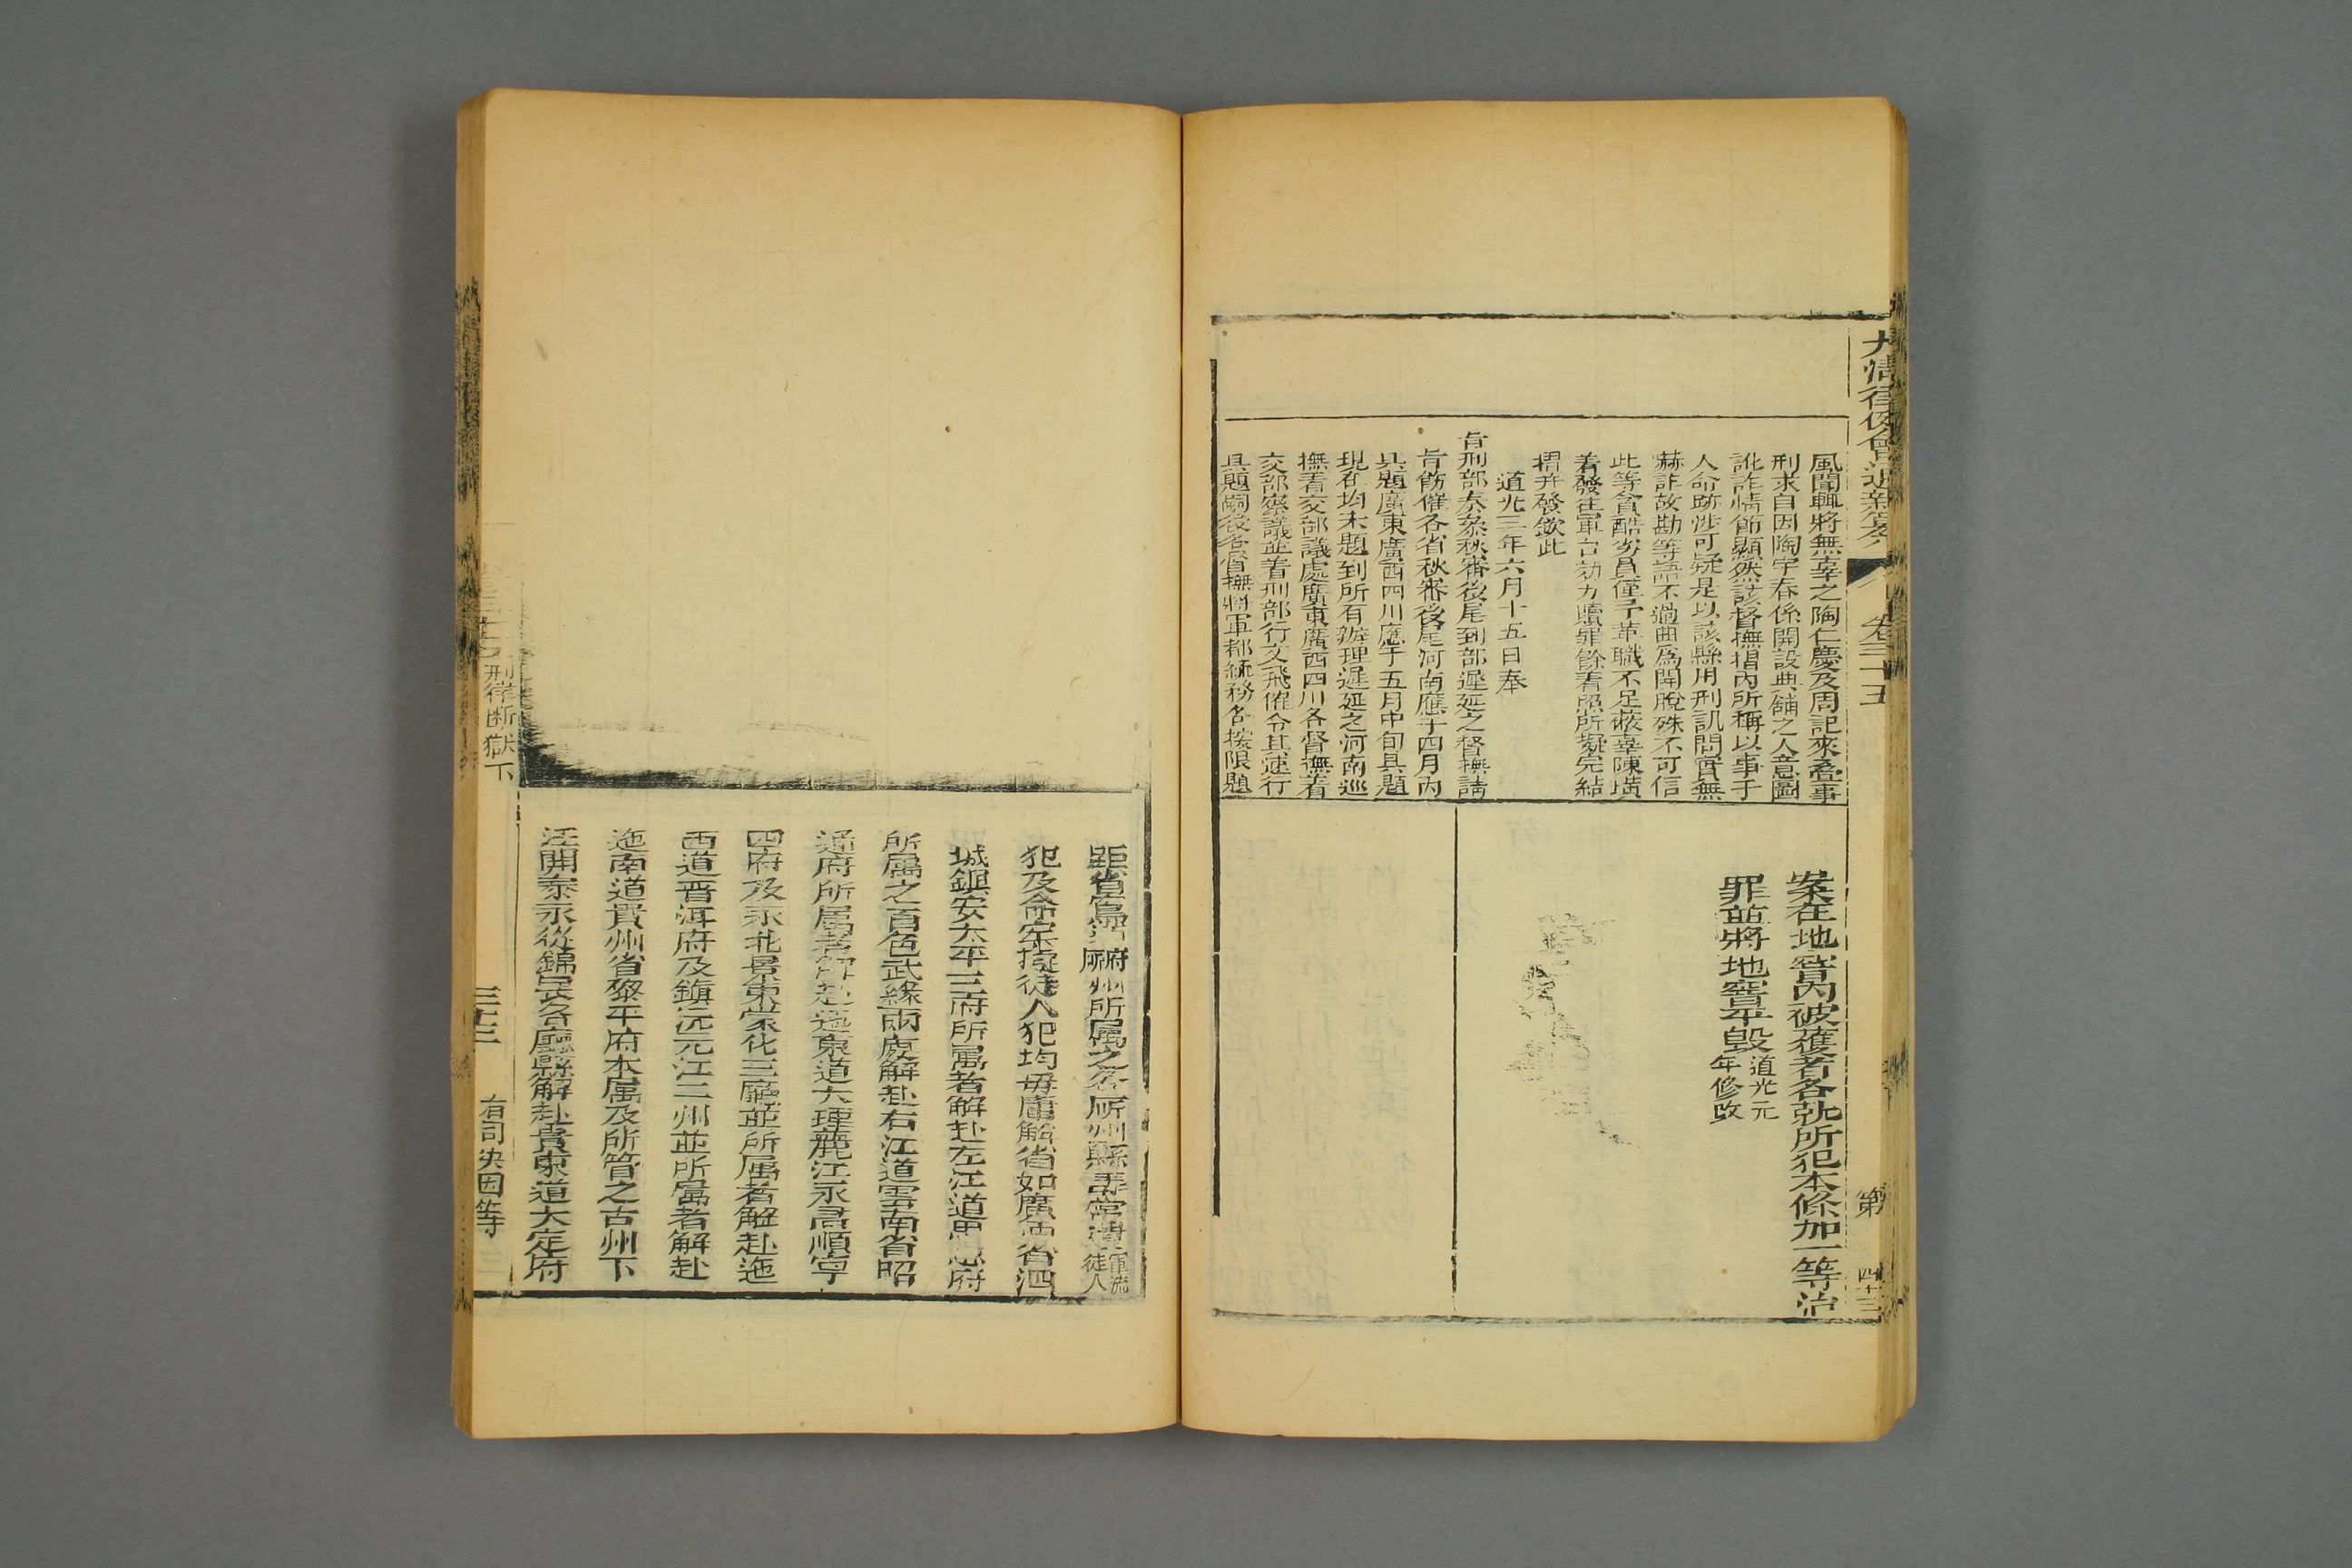 大清律例會通新纂
卷三十五
第
四十三
風聞輒將無辜之陶仁慶及周記來叠事
刑求自因陶宇春係開設典舖之人意圖
訛詐情節顯然該督撫摺內所稱以事于
人命跡涉可疑是以該縣用刑訊問實無
赫詐故勘等語不過曲為開脫殊不可信
此等貪酷劣員僅予革職不足蔽辜陳墳
着發往軍台効力贖罪餘着照所擬完結
摺并發欽此
道光三年六月十五日奉
旨刑部奏叅秋審後尾到部遲延之督撫請
旨飭催各省秋審後尾河南應于四月內
具題廣東廣西四川應于五月中旬具題
現在均未題到所有辦理遲延之河南巡
撫着交部議處廣東廣西四川各督撫着
交部察議並着刑部行文飛催令其速行
具題嗣後各督撫將軍都統務各按限題
案在地窨內被獲者各就所犯本條加一等治
罪並將地窨平毀道光元
年修改
距省窵遠府州所屬之各廳州縣尋常遣軍流
徒人
犯及命案擬徒人犯均毋庸解省如廣西省泗
城鎮安太平三府所屬者解赴左江道思恩府
所屬之百色武緣兩處解赴右江道雲南省昭
通府所屬者解赴迤東道大理麗江永昌順寧
四府及永北景東蒙化三廳並所屬者解赴迤
西道普洱府及鎮沅元江二州並所屬者解赴
迤南道貴州省黎平府本屬及所管之古州下
江開泰永從錦屏各廳縣解赴貴東道大定府
刑律斷獄下
有司決囚等